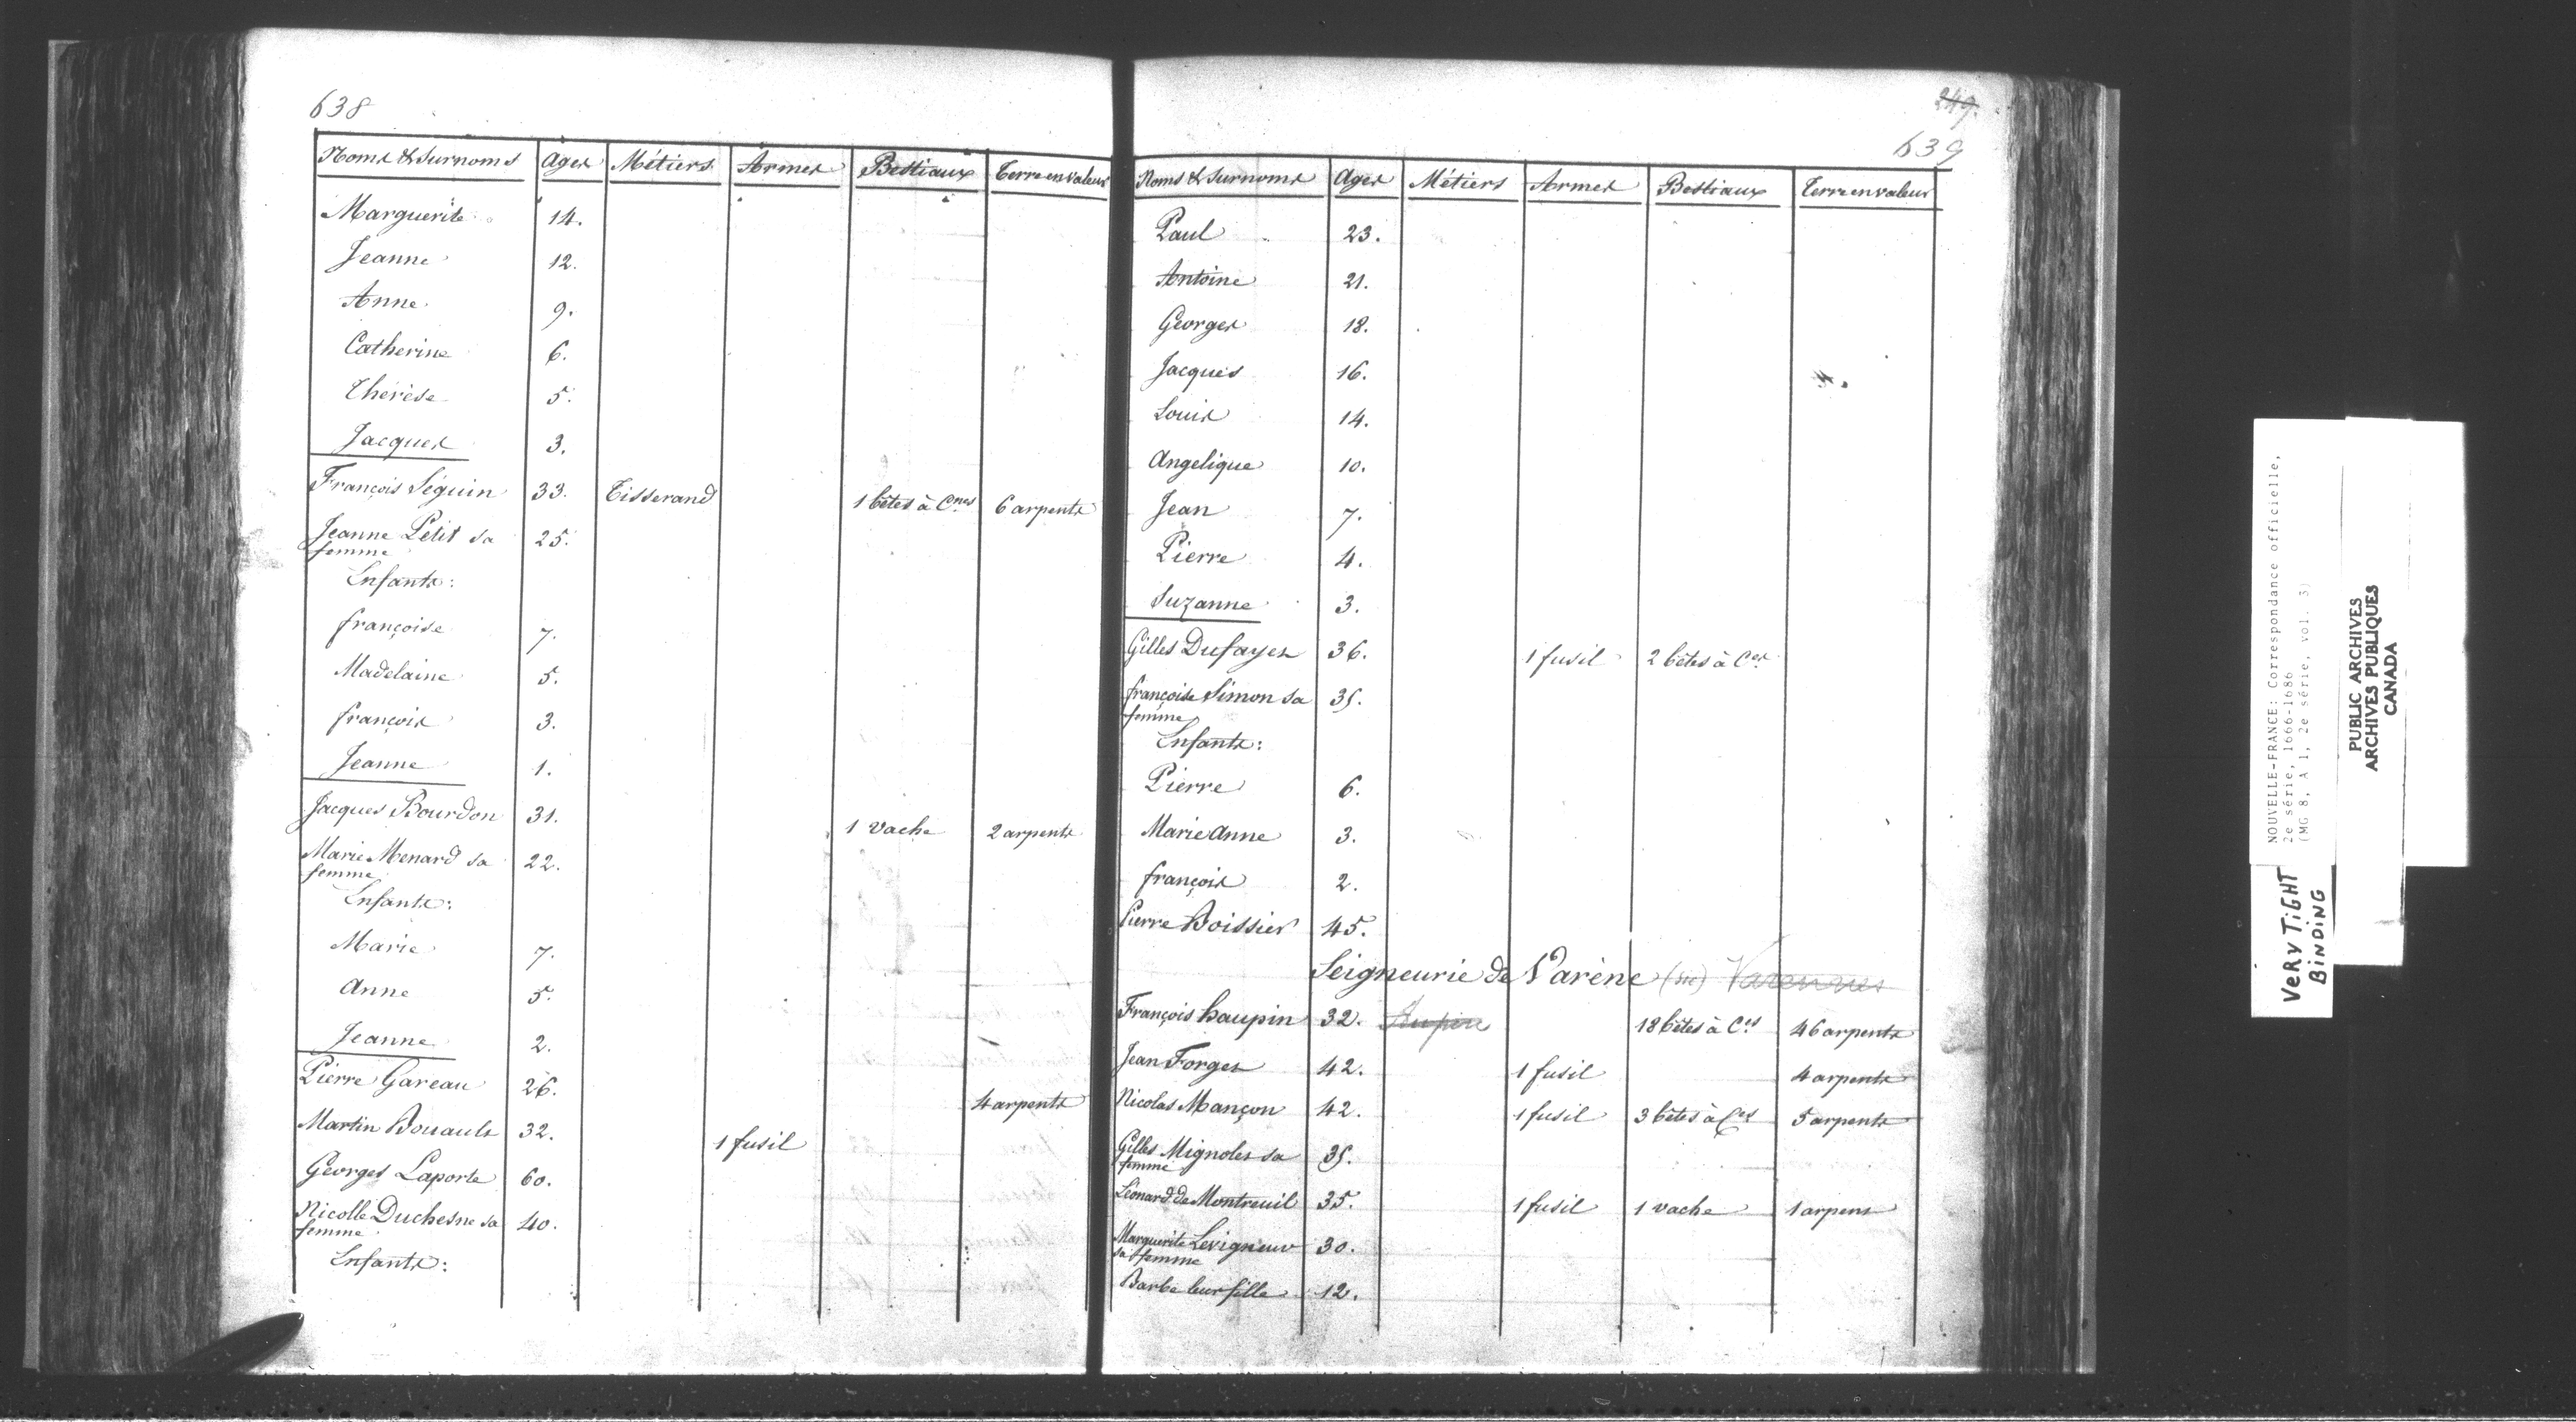 638
Noms & Surnoms Ages Métiers Armes Bestiaux Terre en valeur
Marguerite 14.
Jeanne 12.
Anne 9.
Catherine 6.
Thérèse 5.
Jacques 3.
François Séguin 33. Tisserand 1 bêtes à Cnes 6 arpents
Jeanne Petit sa 25.
femme
Enfants:
françoise 7.
Madelaine 5.
françois 3.
Jeanne 1.
Jacques Bourdon 31. 1 vache 2 arpents
Marie Menard sa 22.
femme
Enfants:
Marie 7.
Anne 5.
Jeanne 2.
Pierre Gareau 26. 4 arpents
Martin Bouault 32. 1 fusil
Georges Laporte 60.
Nicolle Duchesne sa 40.
femme
Enfants:
249.
639
Noms & Surnoms Ages Métiers Armes Bestiaux Terre en valeur
Paul 23.
Antoine 21.
Georges 18.
Jacques 16.
Louis 14.
Angelique 10.
Jean 7.
Pierre 4.
Suzanne 3.
Gilles Dufayes 36. 1 fusil 2 bêtes à Ces
françoise Simon sa 35.
femme
Enfants:
Pierre 6.
Marie Anne 3.
françois 2.
Pierre Boissier 45.
Seigneurie de Varène (sic) Varennes
François haupin 32. 18 bêtes à Ces 46 arpents
Jean Forges 42. 1 fusil 4 arpents
Nicolas Mançon 42. 1 fusil 3 bêtes à Ces 5 arpents
Gilles Mignoles sa 35.
femme
Léonard de Montreuil 35. 1 fusil 1 vache 1 arpent
Marguerite Levigneuv 30.
sa femme
Barbe leur fille 12.
NOUVELLE-FRANCE: Correspondance officielle,
2e série, 1666-1686
(MG 8, A 1, 2e série, vol. 3)
PUBLIC ARCHIVES
ARCHIVES PUBLIQUES
CANADA
VERY TiGHT
BiNDiNG